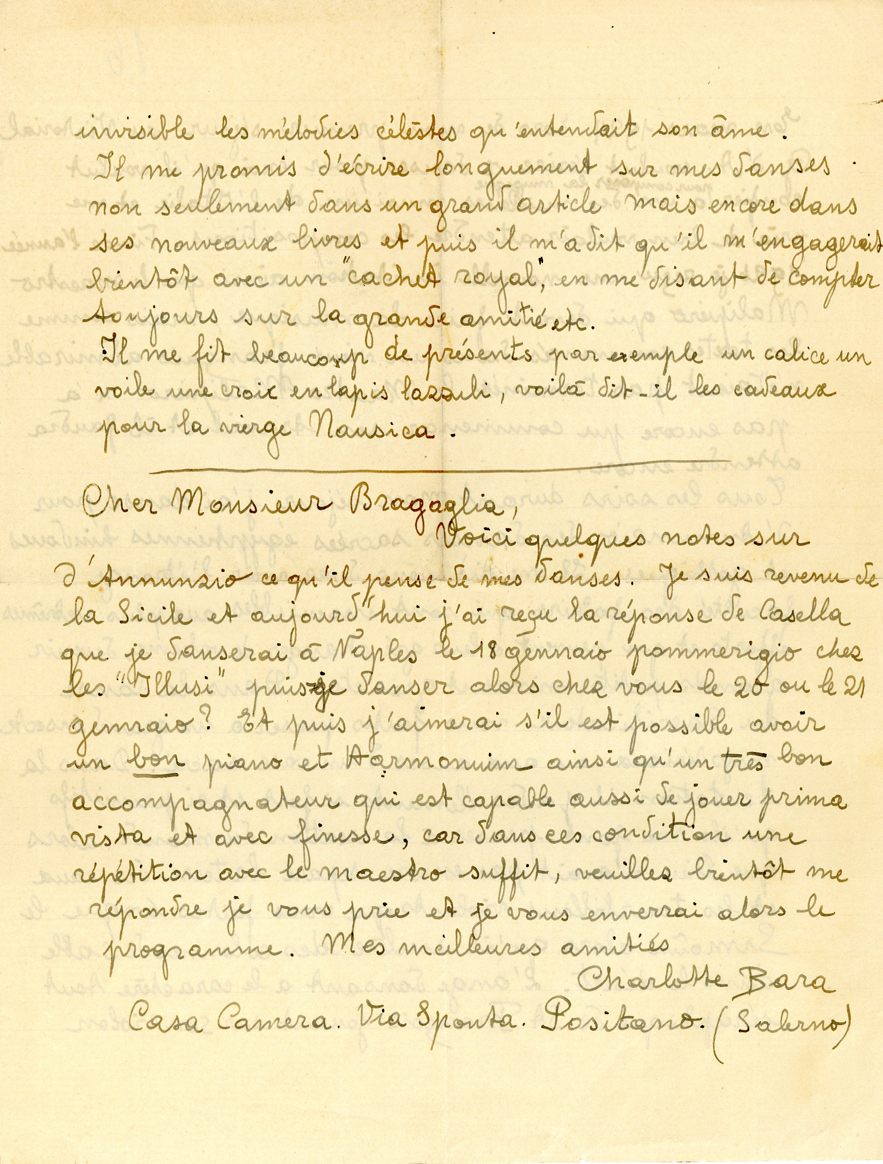 invisible les mélodies célèstes qu'entendait son âme.
Il me promis d'écrire longuement sur mes danses
non seulement dans un grand article mais encore dans
ses nouveaux livres et puis il m'a dit qu'il m'engagerait
bientôt avec un "cachet royal", en me disant de compter
toujours sur la grande amitié etc.
Il me fit beaucoup de présents par exemple un calice un
voile une croix en lapis lazzuli, voilà dit-il les cadeaux
pour la vierge Nausica.
Cher Monsieur Bragaglia,
Voici quelques notes sur
d'Annunzio ce qu'il pense de mes danses. Je suis revenu de
la Sicile et aujourd'hui j'ai reçu la réponse de Casella
que je danserai à Naples le 18 gennaio pommerigio chez
les "Illusi" puis-je danser alors chez vous le 20 ou le 21
gennraio? Et puis j'aimerai s'il est possible avoir
un bon piano et Harmonuim ainsi qu'un très bon
accompagnateur qui est capable aussi de jouer prima
vista et avec finesse, car dans ces condition une
répétition avec le maestro suffit, veuillez bientôt me
répondre je vous prie et je vous enverrai alors le
programme. Mes meilleures amitiés
Charlotte Bara
Casa Camera. Via Sponta. Positano. (Salerno)